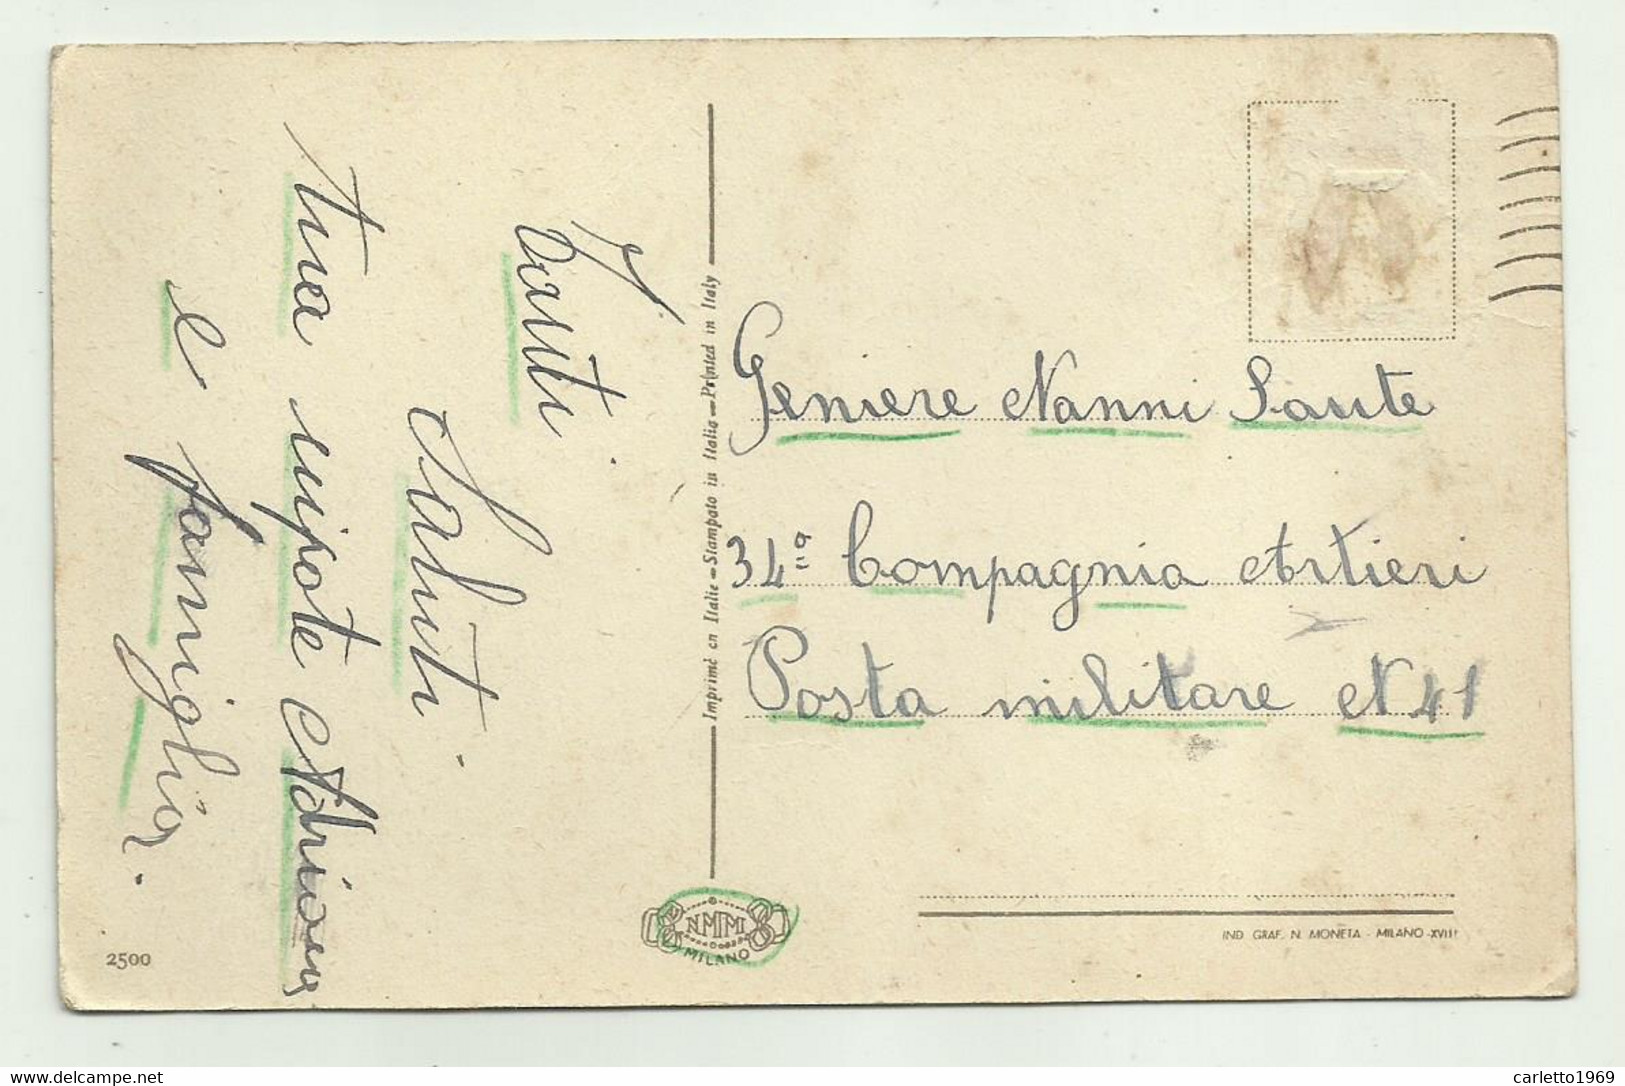 Tanti
Saluti.
tua nipote Adriana
e famiglia.
2500
Imprimé en Italie - Stampato in Italia - Printed in Italy
NMM
MILANO
Geniere Nanni Sante
34ª Compagnia Artieri
Posta militare N 41
IND. GRAF. N. MONETA - MILANO - XVIII
carletto1969